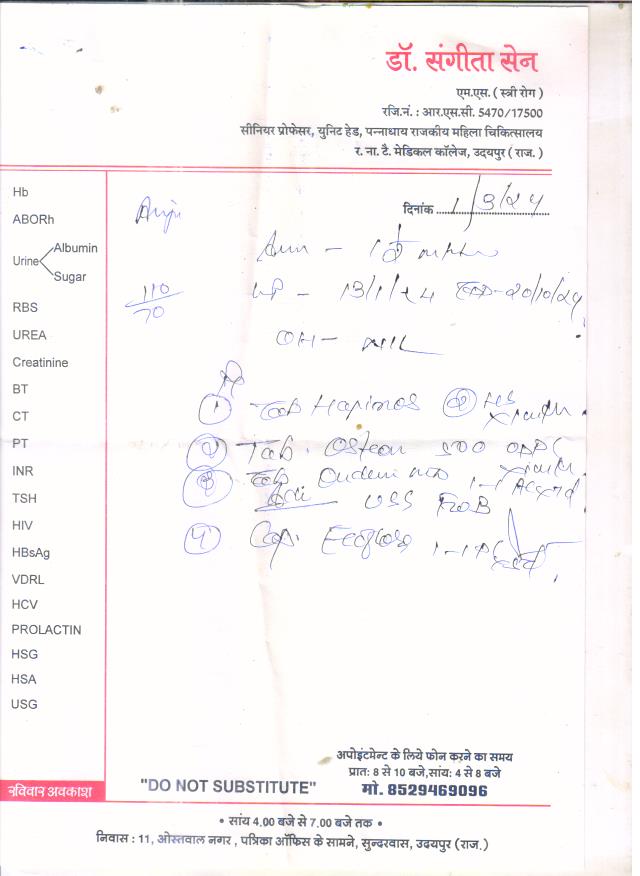 डॉ. संगीता सेन
एम.एस. ( स्त्री रोग )
रजि.नं. : आर.एस.सी. 5470/17500
सीनियर प्रोफेसर, युनिट हेड, पन्नाधाय राजकीय महिला चिकित्सालय
र. ना. टै. मेडिकल कॉलेज, उदयपुर ( राज. )
दिनांक 1/3/24
Hb
ABORh
Urine
Albumin
Sugar
RBS
UREA
Creatinine
BT
CT
PT
INR
TSH
HIV
HBsAg
VDRL
HCV
PROLACTIN
HSG
HSA
USG
Anju
110/70
13/1/24 20/10/24
OH - NIL
①
② Tab. 500
③ Tab
USS
④ Cap. 1-1
रविवार अवकाश
"DO NOT SUBSTITUTE"
अपोइंटमेन्ट के लिये फोन करने का समय
प्रातः 8 से 10 बजे,सांयः 4 से 8 बजे
मो. 8529469096
• सांय 4.00 बजे से 7.00 बजे तक •
निवास : 11, ओस्तवाल नगर , पत्रिका ऑफिस के सामने, सुन्दरवास, उदयपुर (राज.)